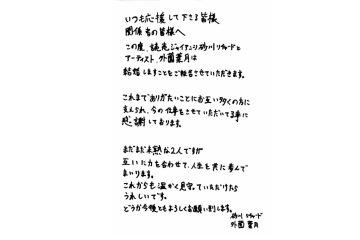 いつも応援して下さる皆様
関係者の皆様へ
この度、読売ジャイアンツ 砂川リチャードと
アーティスト、外薗葉月は
結婚しますことをご報告させていただきます。
これまでありがたいことにお互い多くの方に
支えられ、今の仕事をさせていただいてる事に
感謝しております。
まだまだ未熟な2人ですが
互いに力を合わせて、人生を共に歩んで
まいります。
これからも温かく見守っていただけたら
うれしいです。
どうか今後ともよろしくお願い致します。
砂川リチャード
外薗葉月